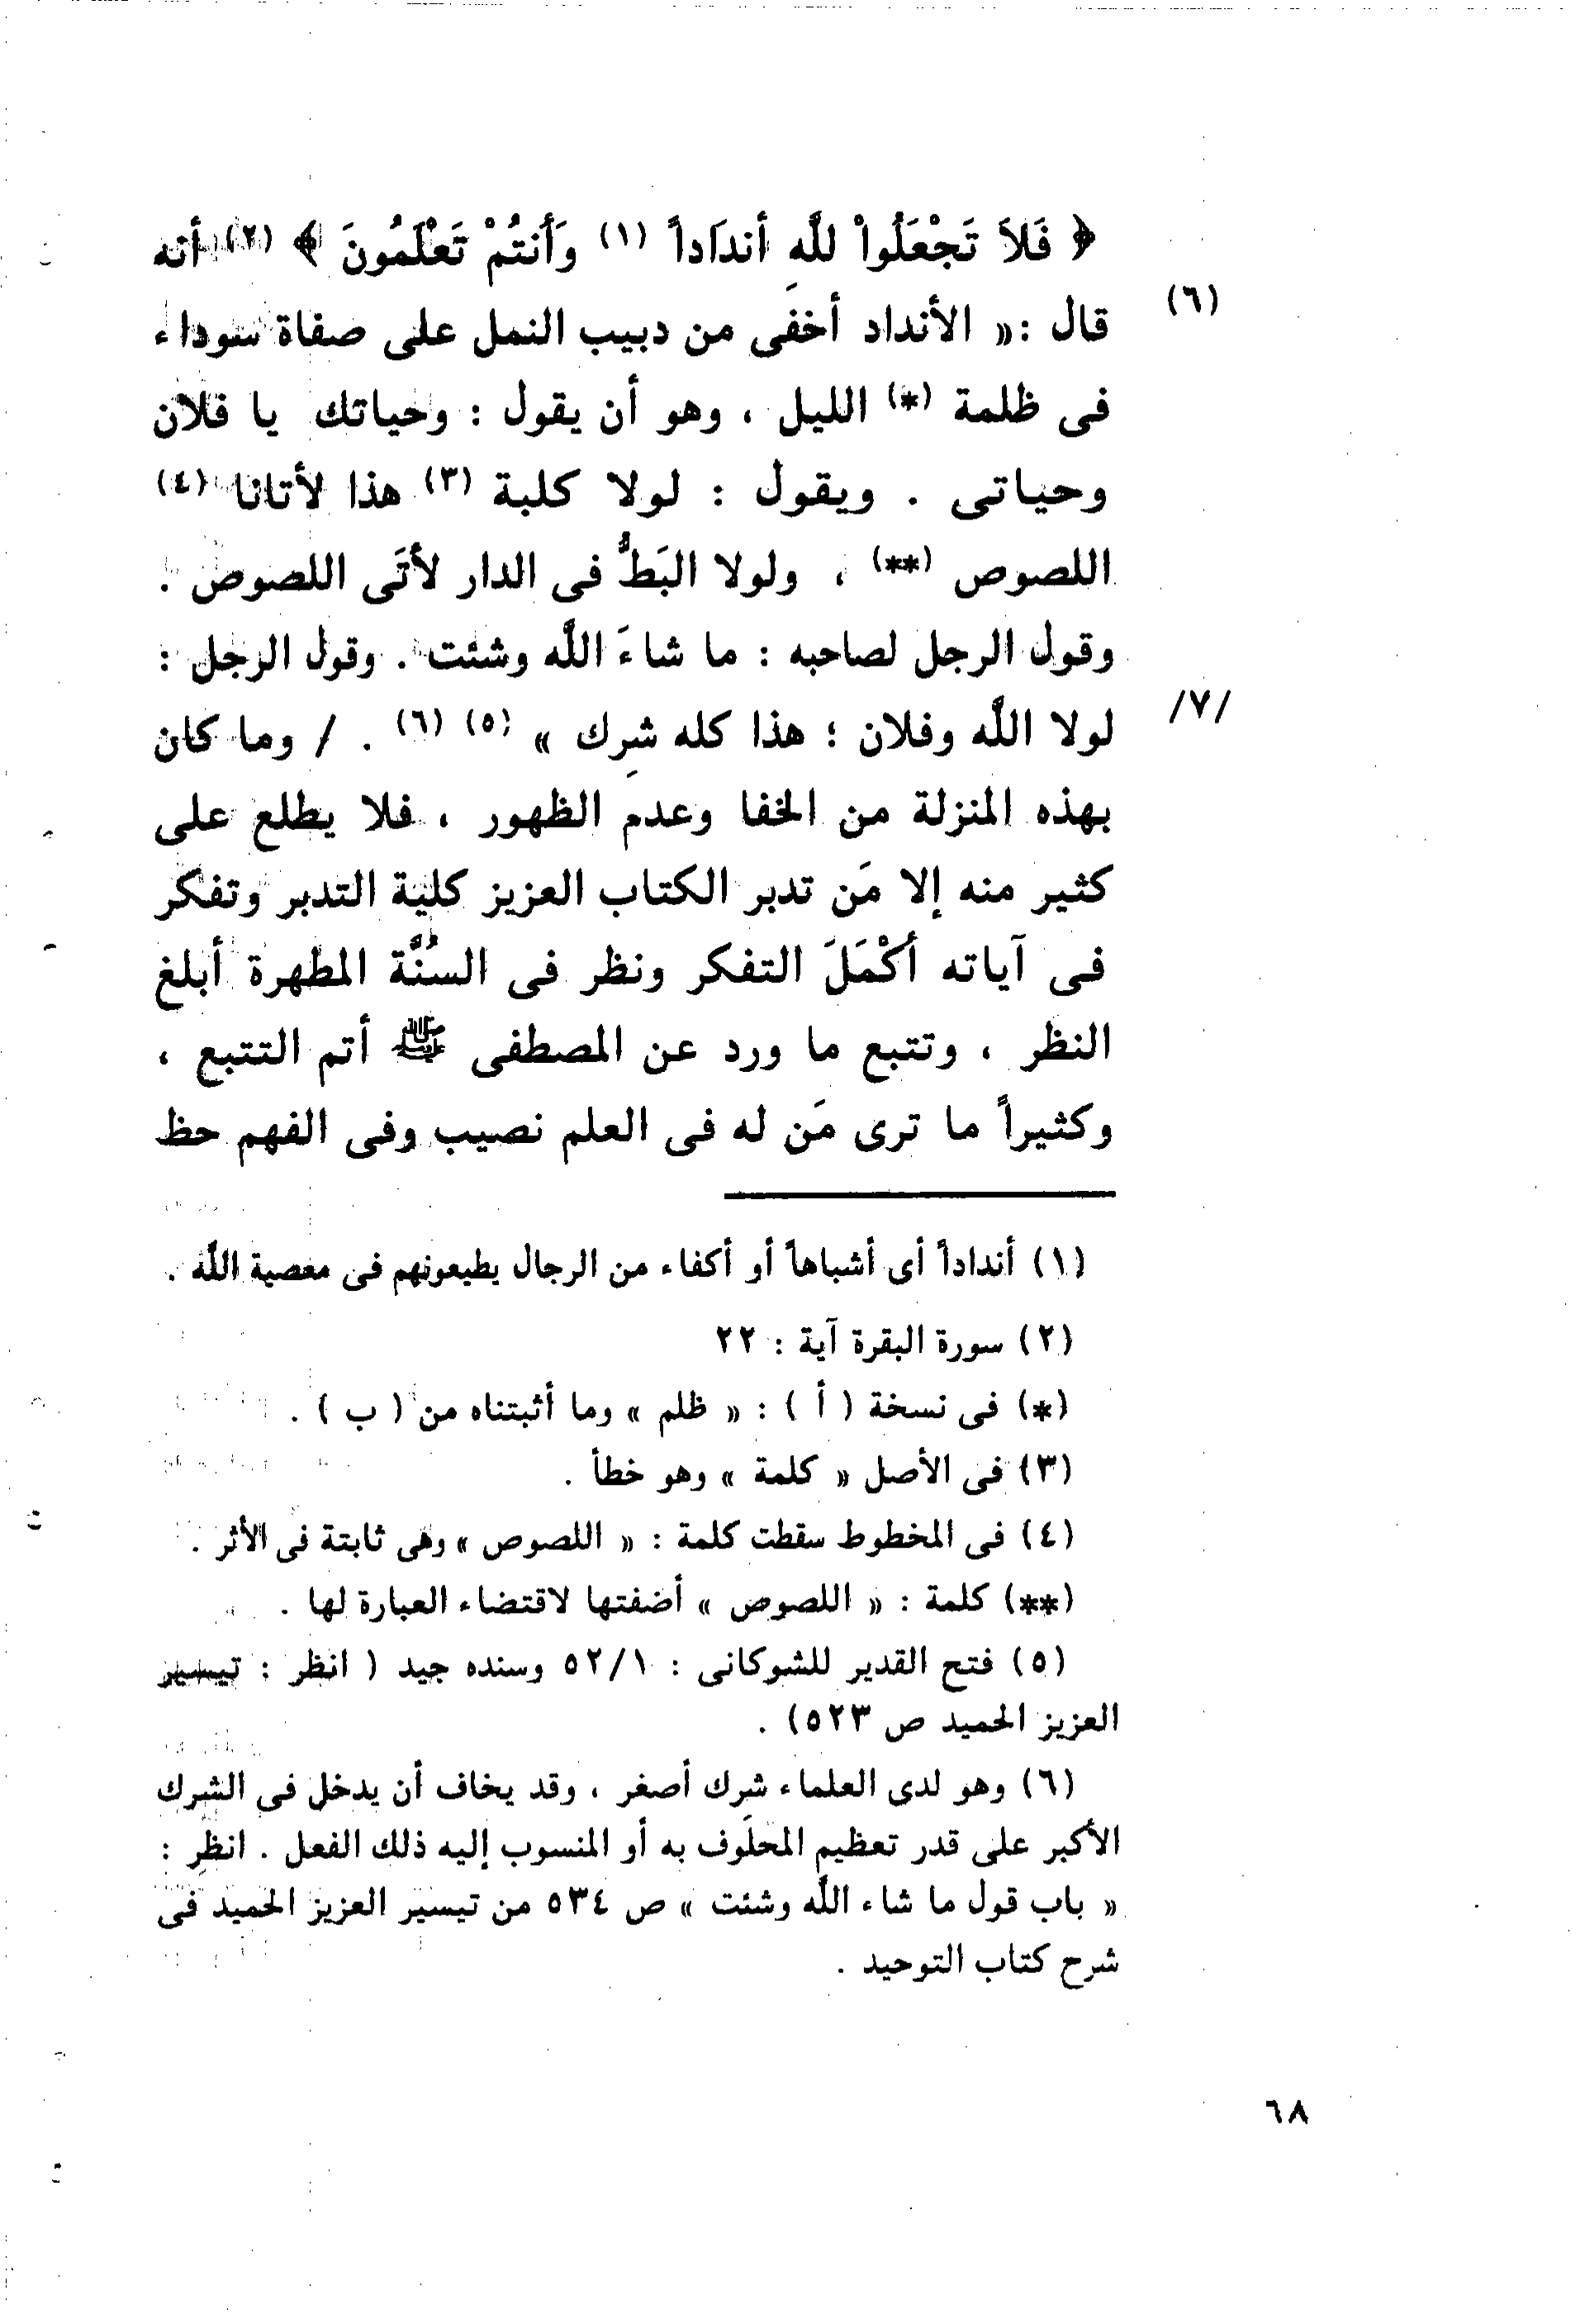 ﴿ فَلاَ تَجْعَلُواْ للَّهِ أندَاداً (١) وَأَنتُمْ تَعْلَمُونَ ﴾ (٢) أنه
(٦)
قال :« الأنداد أخفَى من دبيب النمل على صفاة سوداء
فى ظلمة (*) الليل ، وهو أن يقول : وحياتك يا فلان
وحياتى . ويقول : لولا كلبة (٣) هذا لأتانا (٤)
اللصوص (**) ، ولولا البَطُّ فى الدار لأتَى اللصوص .
وقول الرجل لصاحبه : ما شاءَ اللَّه وشئت . وقول الرجل :
/٧/
لولا اللَّه وفلان ؛ هذا كله شِرك » (٥) (٦) . / وما كان
بهذه المنزلة من الخفا وعدم الظهور ، فلا يطلع على
كثير منه إلا مَن تدبر الكتاب العزيز كلية التدبر وتفكر
فى آياته أكْمَلَ التفكر ونظر فى السُنَّة المطهرة أبلغ
النظر ، وتتبع ما ورد عن المصطفى ﷺ أتم التتبع ،
وكثيراً ما ترى مَن له فى العلم نصيب وفى الفهم حظ
(١) أنداداً أى أشباهاً أو أكفاء من الرجال يطيعونهم فى معصية اللَّه .
(٢) سورة البقرة آية : ٢٢
(*) فى نسخة ( أ ) : « ظلم » وما أثبتناه من ( ب ) .
(٣) فى الأصل « كلمة » وهو خطأ .
(٤) فى المخطوط سقطت كلمة : « اللصوص » وهى ثابتة فى الأثر .
(**) كلمة : « اللصوص » أضفتها لاقتضاء العبارة لها .
(٥) فتح القدير للشوكانى : ٥٢/١ وسنده جيد ( انظر : تيسير
العزيز الحميد ص ٥٢٣) .
(٦) وهو لدى العلماء شرك أصغر ، وقد يخاف أن يدخل فى الشرك
الأكبر على قدر تعظيم المحلَوف به أو المنسوب إليه ذلك الفعل . انظر :
« باب قول ما شاء اللَّه وشئت » ص ٥٣٤ من تيسير العزيز الحميد فى
شرح كتاب التوحيد .
٦٨